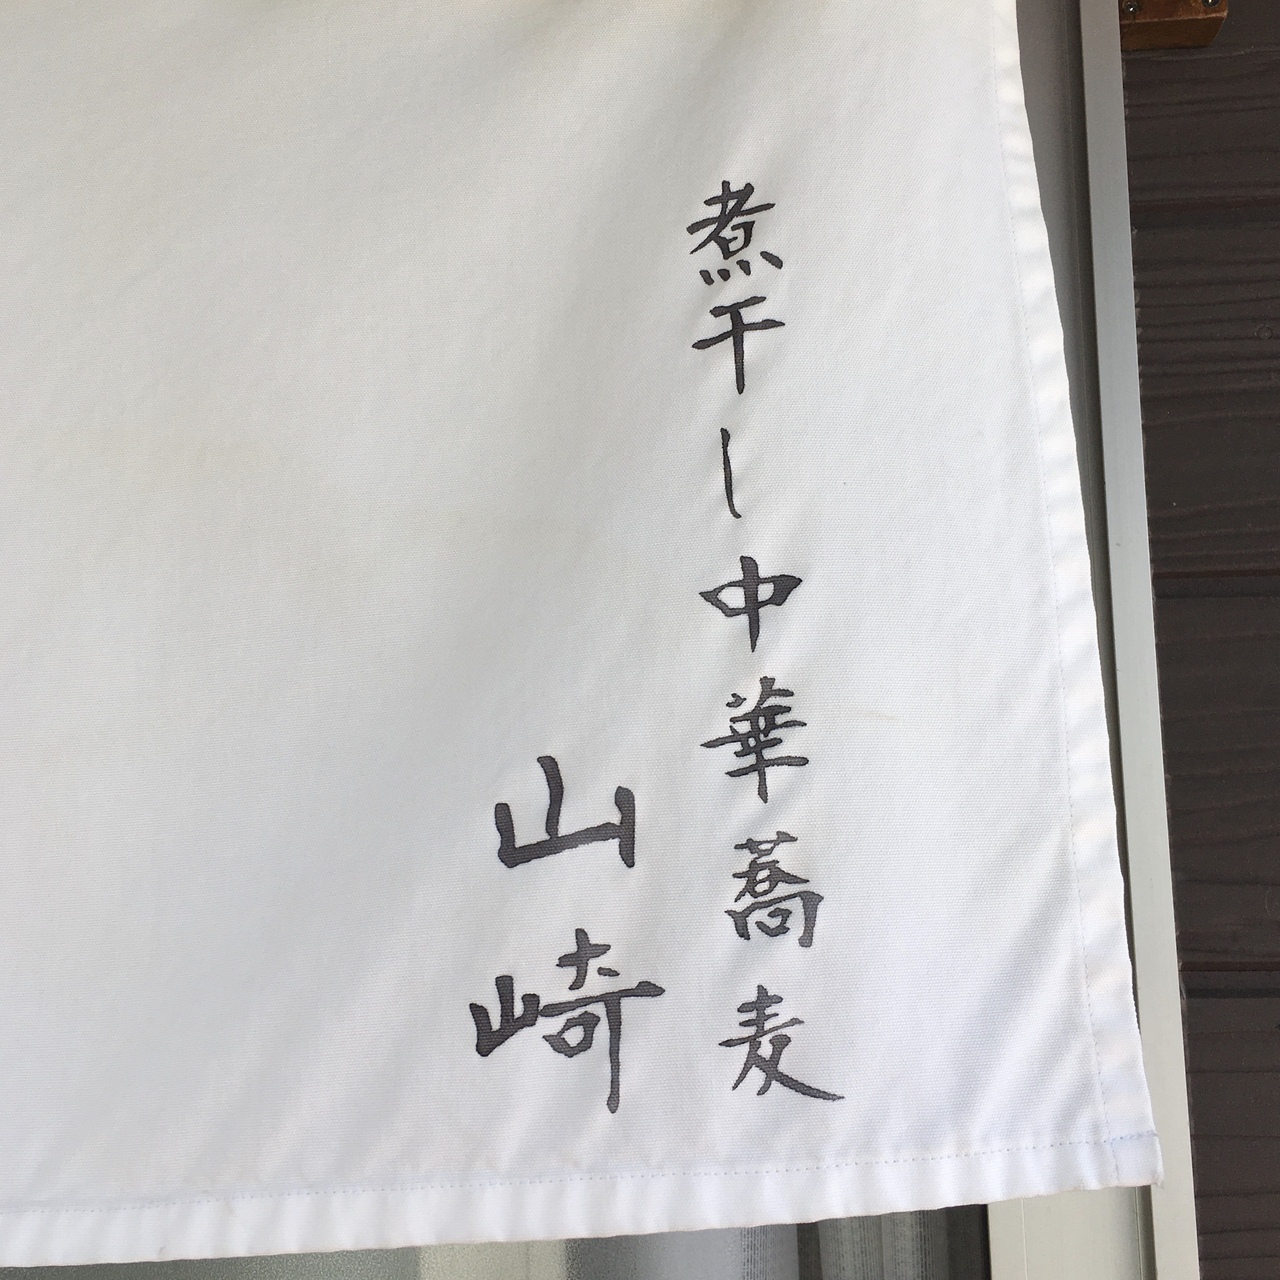 煮干し中華蕎麦
山崎